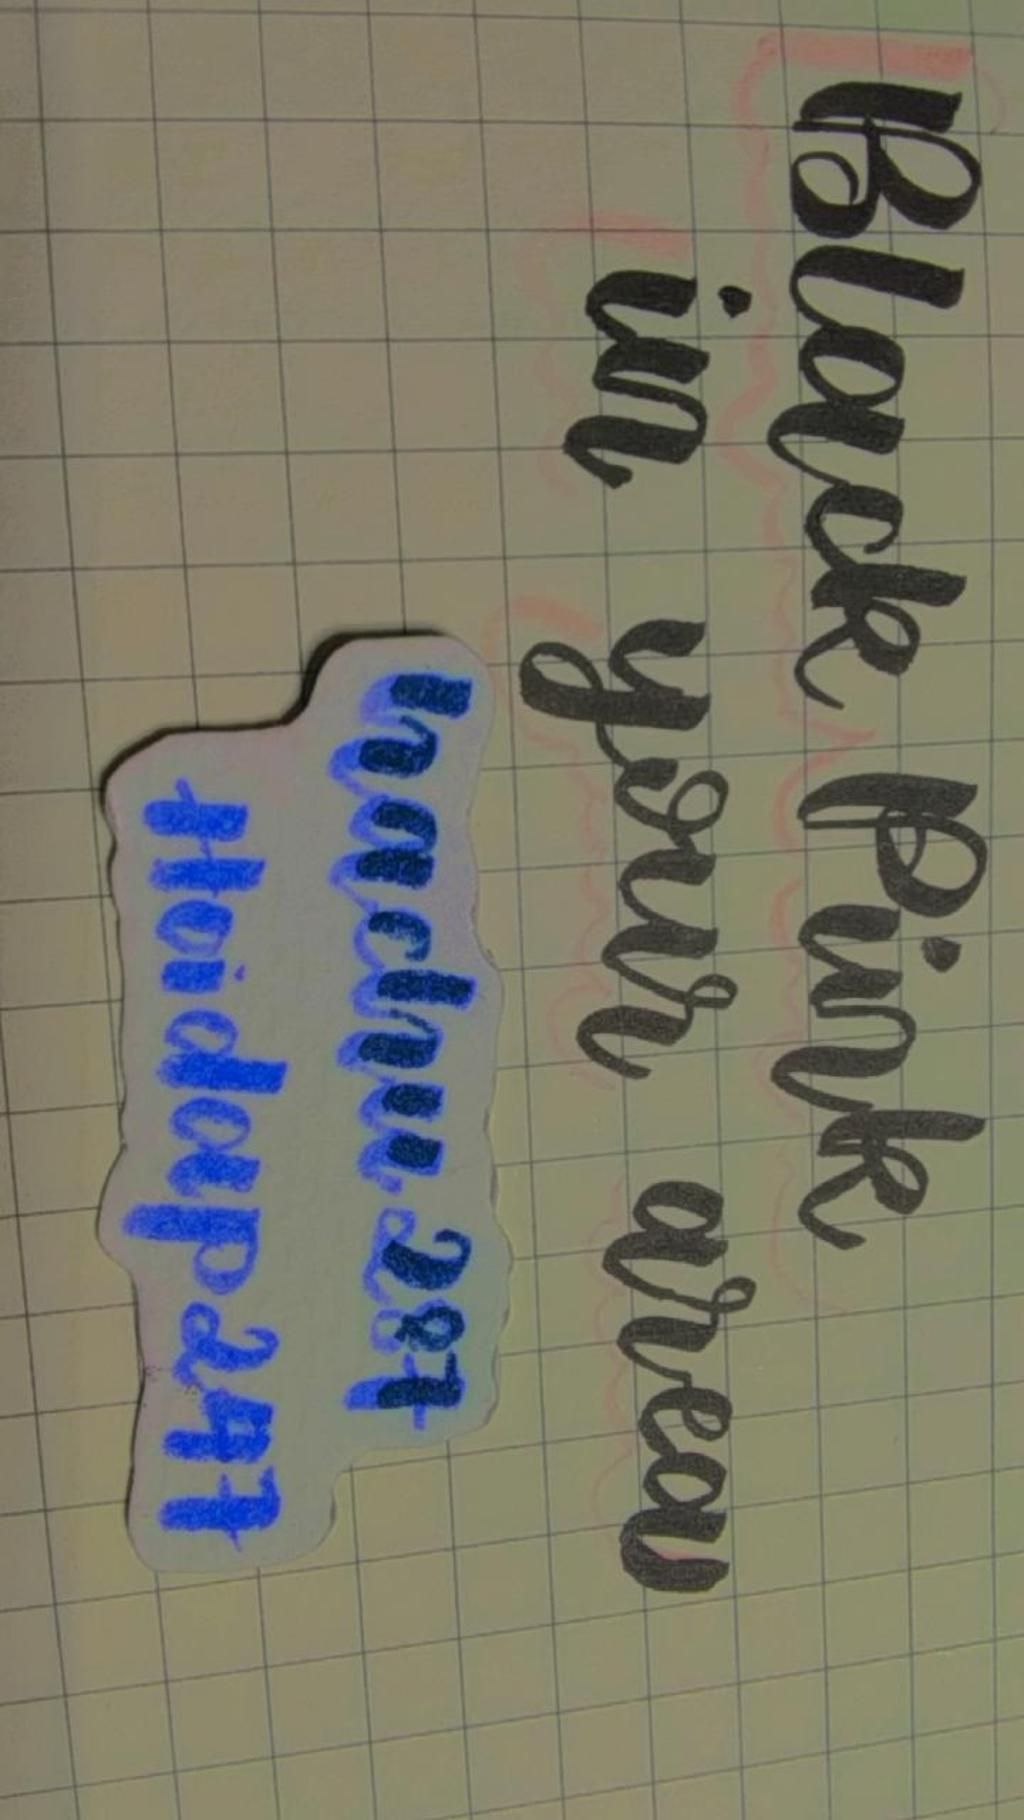 Black Pink
in your area
hachu.287
Hoidap247